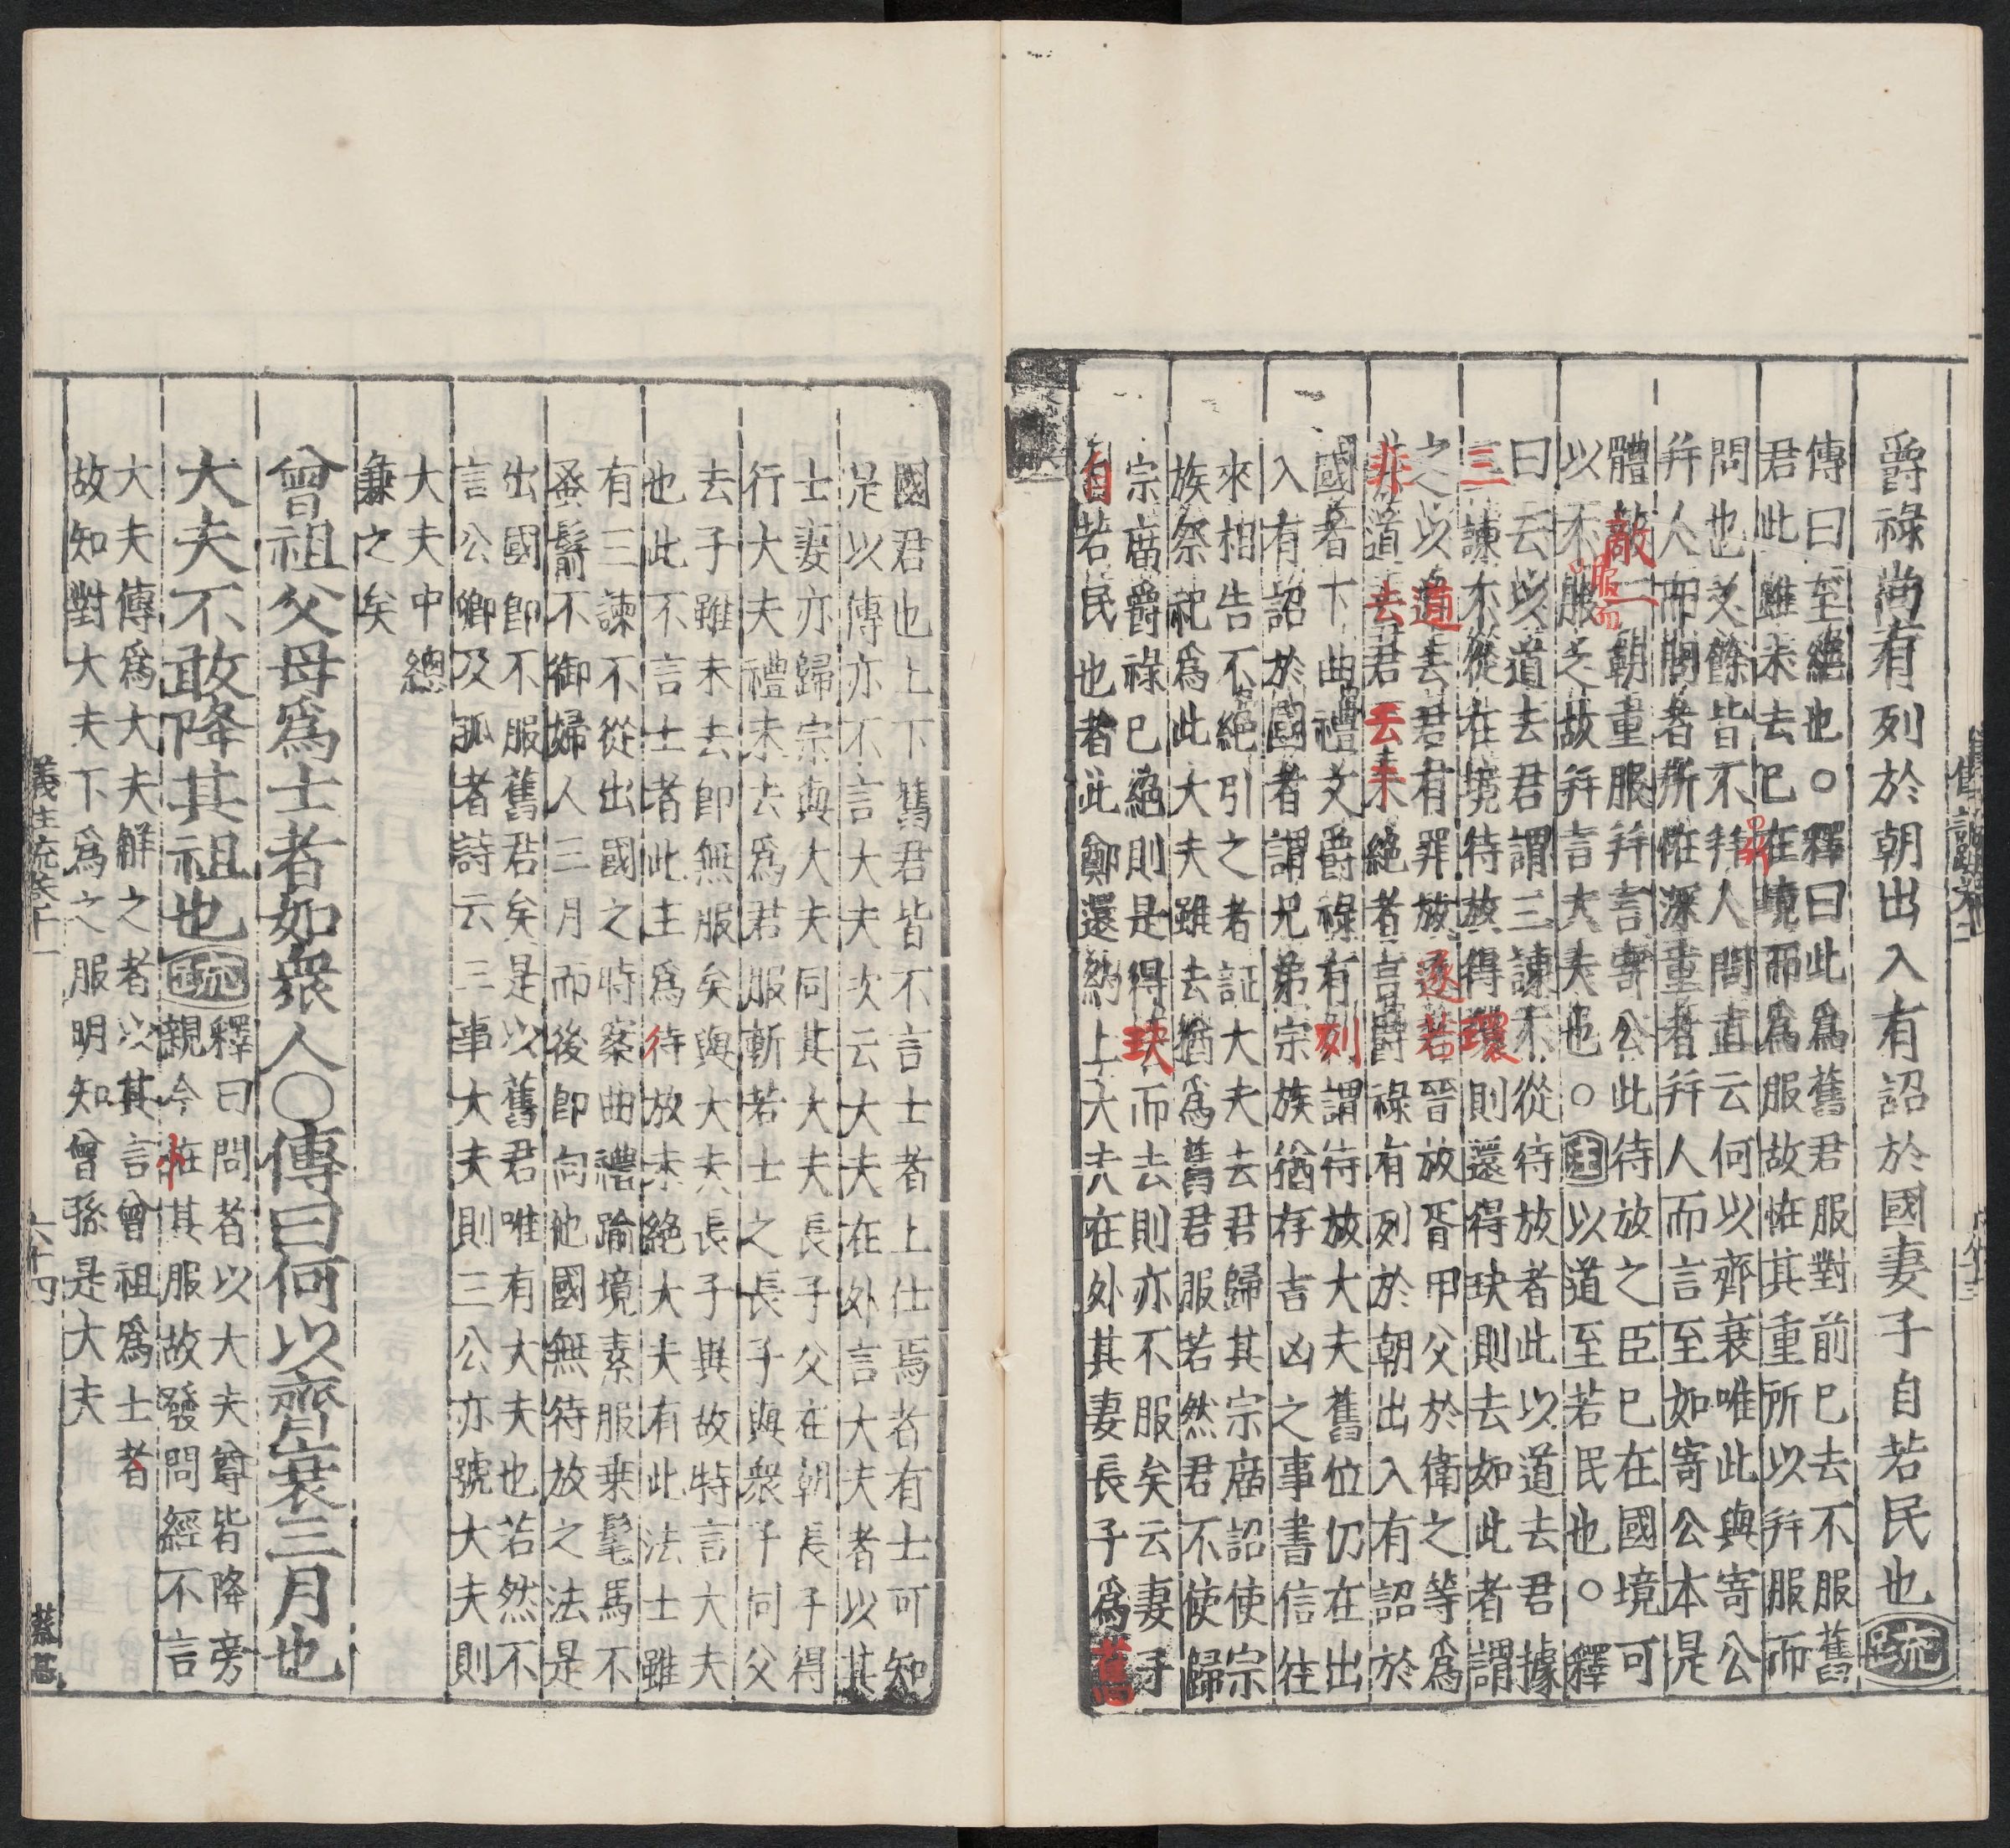 爵祿尚有列於朝出入有詔於國妻子自若民也疏
傳曰至絕也○釋曰此為舊君服對前已去不服舊
君此雖未去已在境而為服故恠其重所以并服而
問也必餘皆不拜人問直云何以齊衰唯此與寄公
并人而問者所恠深重者并人而言至如寄公本是
體敵一朝重服并言寄公此待放之臣已在國境可
以不服之故并言大夫也○注以道至若民也○釋
曰云以道去君謂三諫不從待放者此以道去君據
三諫不從在境待放得環則還得玦則去如此者謂
之以道去君有罪放逐若晉放胥甲父於衛之等為
非道去君云未絕者言爵祿有列於朝出入有詔於
國者下曲禮文爵祿有列謂待放大夫舊位仍在出
入有詔於國者謂兄弟宗族猶存吉凶之事書信往
來相告不絕引之者証大夫去君歸其宗廟詔使宗
族祭祀為此大夫雖去猶為舊君服若然君不使歸
宗廟爵祿已絕則是得玦而去則亦不服矣云妻子
自若民也者此鄭還約上大夫在外其妻長子為舊
國君也上下舊君皆不言士者上仕焉者有士可知
是以傳亦不言大夫次云大夫在外言大夫者以其
士妻亦歸宗與大夫同其大夫長子父在朝長子得
行大夫禮未去為君服斬若士之長子與眾子同父
去子雖未去即無服矣與大夫長子異故特言大夫
也此不言士者此主為待放未絕大夫有此法士雖
有三諫不從出國之時案曲禮踰境素服乗髦馬不
蚤鬋不御婦人三月而後即向他國無待放之法是
出國即不服舊君矣是以舊君唯有大夫也若然不
言公卿及孤者詩云三事大夫則三公亦號大夫則
大夫中總
兼之矣
曾祖父母為士者如眾人○傳曰何以齊衰三月也
大夫不敢降其祖也疏釋曰問者以大夫尊皆降旁
親今在其服故發問經不言
大夫傳為大夫解之者以其言曾祖為士者
故知對大夫下為之服明知曾孫是大夫
六十四